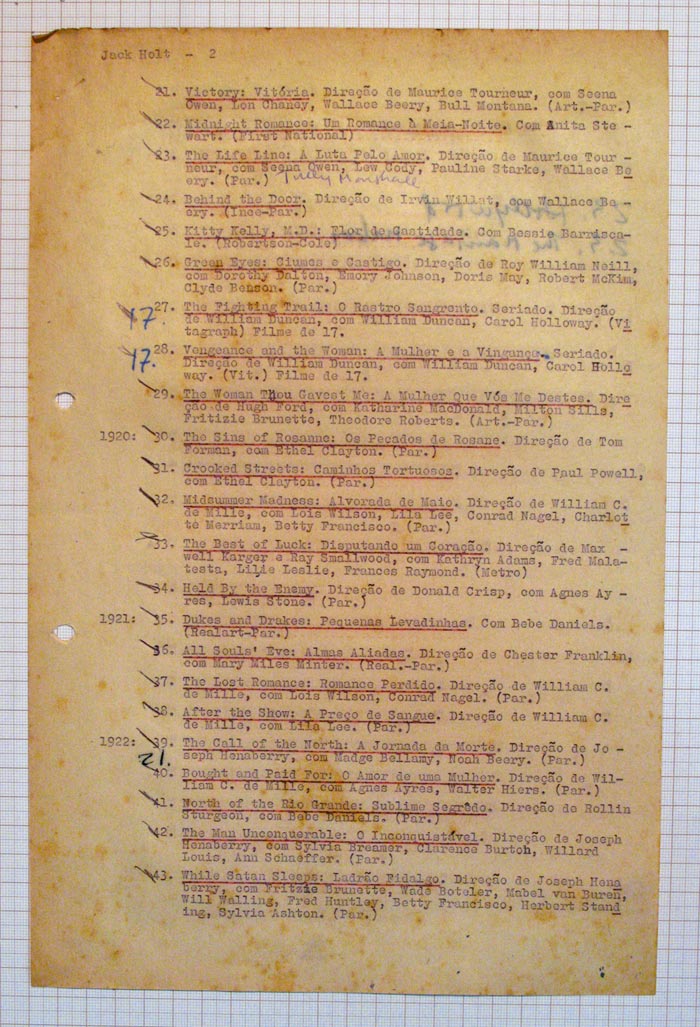 Jack Holt - 2
21. Victory: Vitória. Direção de Maurice Tourneur, com Seena
Owen, Lon Chaney, Wallace Beery, Bull Montana. (Art.-Par.)
22. Midnight Romance: Um Romance à Meia-Noite. Com Anita Ste -
wart. (First National)
23. The Life Line: A Luta Pelo Amor. Direção de Maurice Tour -
neur, com Seena Owen, Lew Cody, Pauline Starke, Wallace Be
ery. (Par.) Tully Marshall
24. Behind the Door. Direção de Irvin Willat, com Wallace Be -
ery. (Ince-Par.)
25. Kitty Kelly, M.D.: Flor de Castidade. Com Bessie Barrisca-
le. (Robertson-Cole)
26. Green Eyes: Ciumes e Castigo. Direção de Roy William Neill,
com Dorothy Dalton, Emory Johnson, Doris May, Robert McKim,
Clyde Benson. (Par.)
27. The Fighting Trail: O Rastro Sangrento. Seriado. Direção
17. de William Duncan, com William Duncan, Carol Holloway. (Vi
tagraph) Filme de 17.
28. Vengeance and the Woman: A Mulher e a Vingança. Seriado.
17. Direção de William Duncan, com William Duncan, Carol Hollo
way. (Vit.) Filme de 17.
29. The Woman Thou Gavest Me: A Mulher Que Vós Me Destes. Dire
ção de Hugh Ford, com Katharine MacDonald, Milton Sills,
Fritizie Brunette, Theodore Roberts. (Art.-Par.)
1920: 30. The Sins of Rosanne: Os Peçados de Rosane. Direção de Tom
Forman, com Ethel Clayton. (Par.)
31. Crooked Streets: Caminhos Tortuosos. Direção de Paul Powell,
com Ethel Clayton. (Par.)
32. Midsummer Madness: Alvorada de Maio. Direção de William C.
de Mille, com Lois Wilson, Lila Lee, Conrad Nagel, Charlot
te Merriam, Betty Francisco. (Par.)
33. The Best of Luck: Disputando um Coração. Direção de Max -
well Karger e Ray Smallwood, com Kathryn Adams, Fred Mala-
testa, Lilie Leslie, Frances Raymond. (Metro)
34. Held By the Enemy. Direção de Donald Crisp, com Agnes Ay -
res, Lewis Stone. (Par.)
1921: 35. Dukes and Drakes: Pequenas Levadinhas. Com Bebe Daniels.
(Realart-Par.)
36. All Souls' Eve: Almas Aliadas. Direção de Chester Franklin,
com Mary Miles Minter. (Real.-Par.)
37. The Lost Romance: Romance Perdido. Direção de William C.
de Mille, com Lois Wilson, Conrad Nagel. (Par.)
38. After the Show: A Preço de Sangue. Direção de William C.
de Mille, com Lila Lee. (Par.)
1922: 39. The Call of the North: A Jornada da Morte. Direção de Jo -
21. seph Henaberry, com Madge Bellamy, Noah Beery. (Par.)
40. Bought and Paid For: O Amor de uma Mulher. Direção de Wil-
liam C. de Mille, com Agnes Ayres, Walter Hiers. (Par.)
41. North of the Rio Grande: Sublime Segrêdo. Direção de Rollin
Sturgeon, com Bebe Daniels. (Par.)
42. The Man Unconquerable: O Inconquistável. Direção de Joseph
Henaberry, com Sylvia Breamer, Clarence Burton, Willard
Louis, Ann Schaeffer. (Par.)
43. While Satan Sleeps: Ladrão Fidalgo. Direção de Joseph Hena
berry, com Fritzie Brunette, Wade Boteler, Mabel van Buren,
Will Walling, Fred Huntley, Betty Francisco, Herbert Stand
ing, Sylvia Ashton. (Par.)